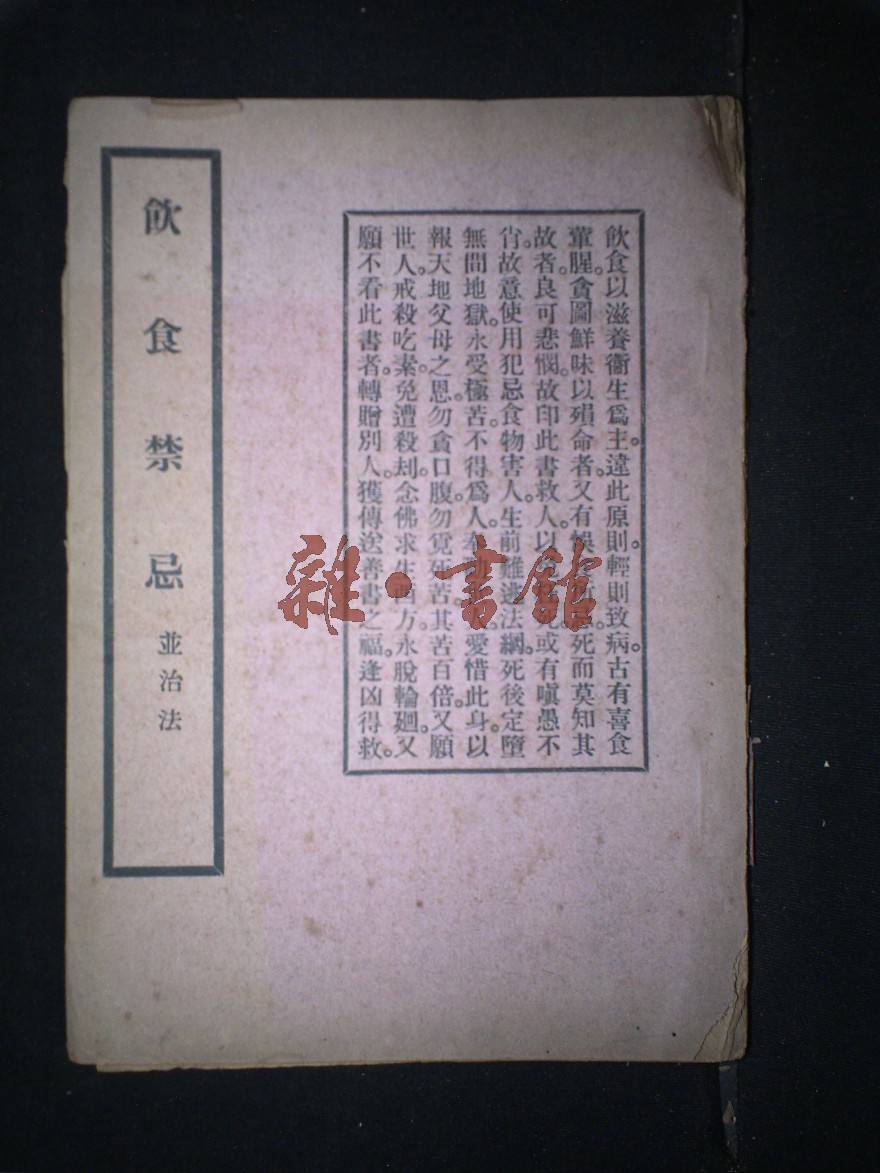 飲食以滋養衞生爲主。違此原則。輕則致病。古有喜食
葷腥。貪圖鮮味以殞命者。又有死而莫知其
故者。良可悲憫。故印此書救人。以或有嗔愚不
肖。故意使用犯忌食物害人。生前難逃法網。死後定墮
無間地獄。永受極苦。不得爲人。愛惜此身。以
報天地父母之恩。勿貪口腹。勿覓死苦。其苦百倍。又願
世人戒殺吃素。免遭殺刦。念佛求生西方。永脫輪廻。又
願不看此書者。轉贈別人。獲傳送善書之福。逢凶得救。
飲食禁忌並治法
雜·書館